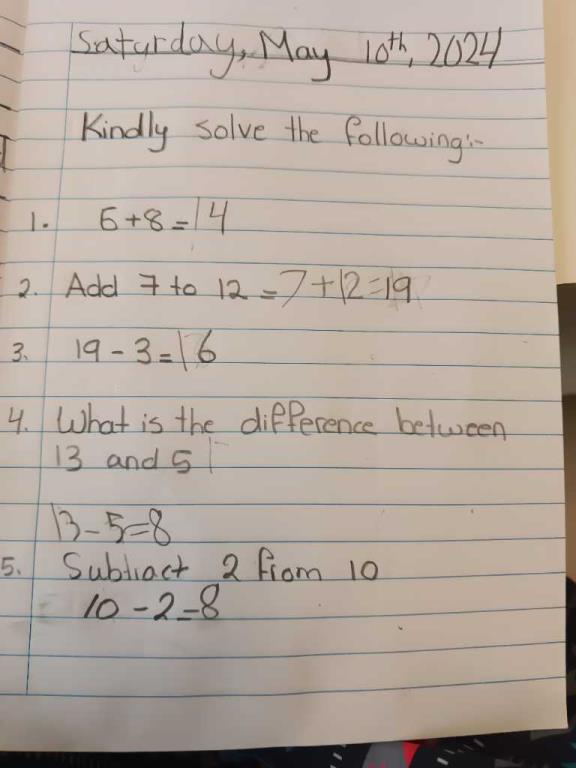 Saturday, May 10th, 2024
Kindly solve the following:-
1. 6+8=14
2. Add 7 to 12 = 7+12=19
3. 19-3=16
4. What is the difference between
13 and 5
13-5=8
5. Subtract 2 from 10
10-2=8